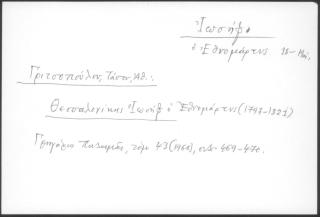 Ἰωσήφ
ὁ Ἐθνομάρτυς
Γριτσοπούλου, Τάσου, Ἀθ.:
Θεσσαλονίκης Ἰωσήφ ὁ Ἐθνομάρτυς (1747-1821)
Γρηγόριος Παλαμᾶς, τόμ. 43 (1960), σελ. 469-476.